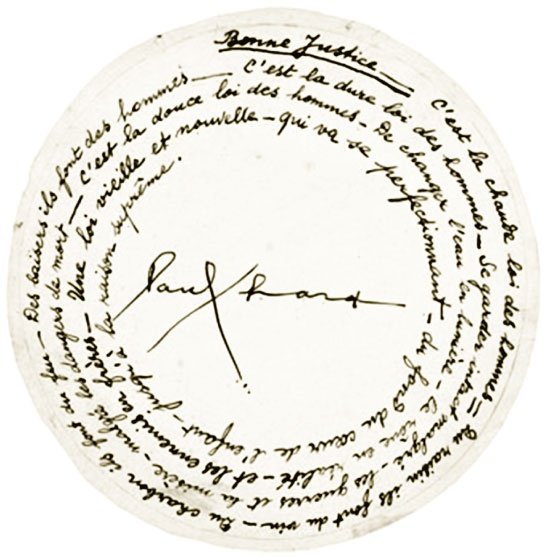 Bonne Justice —
C'est la chaude loi des hommes = Du raisin ils font du vin – Du charbon ils font du feu – Des baisers ils font des hommes —
C'est la dure loi des hommes – Se garder intact malgré – les guerres et la misère – malgré les dangers de mort —
C'est la douce loi des hommes – De changer l'eau en lumière – Le rêve en réalité – et les ennemis en frères –
Une loi vieille et nouvelle – qui va se perfectionnant – du fond du cœur de l'enfant – jusqu'à la raison suprême.
Paul Eluard